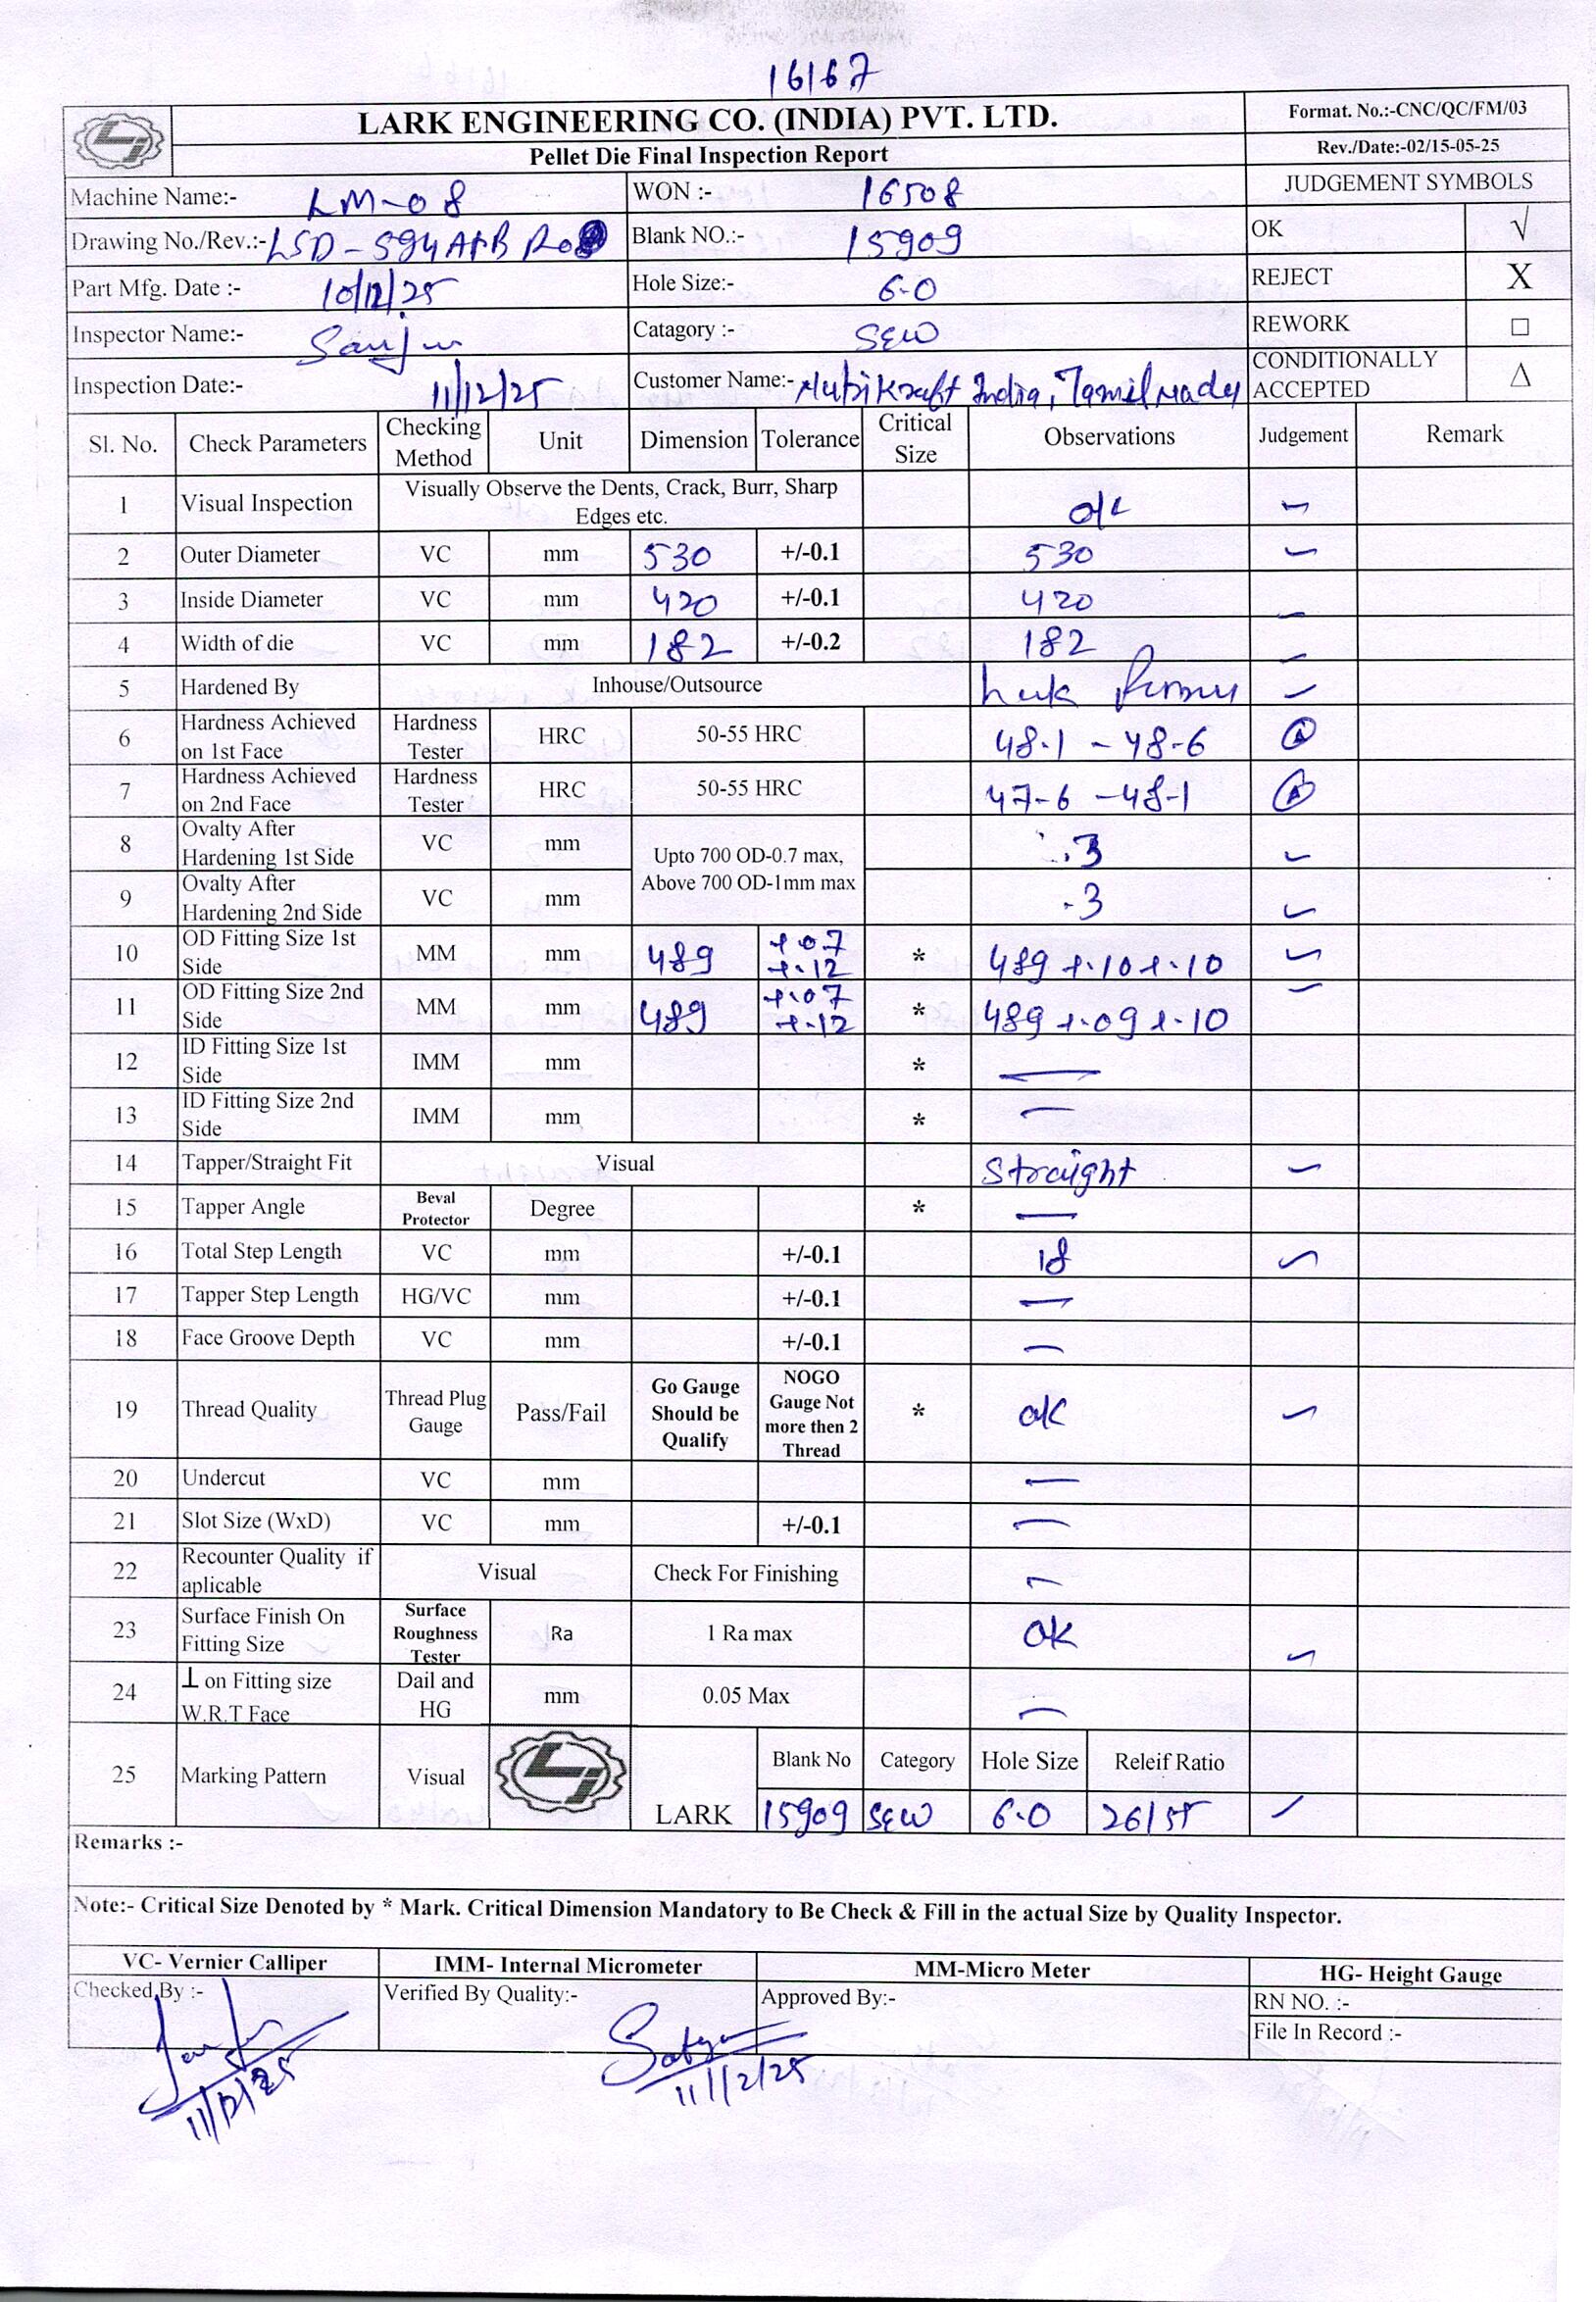 16167
LARK ENGINEERING CO. (INDIA) PVT. LTD.
Format. No.:-CNC/QC/FM/03
Pellet Die Final Inspection Report
Rev./Date:-02/15-05-25
Machine Name:- LM-08 WON :- 16508 JUDGEMENT SYMBOLS
Drawing No./Rev.:- LSD-594A+B Blank NO.:- 15909 OK √
Part Mfg. Date :- 10/12/25 Hole Size:- 6.0 REJECT X
Inspector Name:- Sanju Catagory :- SEW REWORK □
Inspection Date:- 11/12/25 Customer Name:- Nutrikraft India, Tamilnadu CONDITIONALLY ACCEPTED △
Sl. No. Check Parameters Checking Method Unit Dimension Tolerance Critical Size Observations Judgement Remark
1 Visual Inspection Visually Observe the Dents, Crack, Burr, Sharp Edges etc. ok ✓
2 Outer Diameter VC mm 530 +/-0.1 530 ✓
3 Inside Diameter VC mm 420 +/-0.1 420 ✓
4 Width of die VC mm 182 +/-0.2 182 ✓
5 Hardened By Inhouse/Outsource ✓
6 Hardness Achieved on 1st Face Hardness Tester HRC 50-55 HRC 48.1 - 48.6
7 Hardness Achieved on 2nd Face Hardness Tester HRC 50-55 HRC 47-6 - 48-1
8 Ovalty After Hardening 1st Side VC mm Upto 700 OD-0.7 max, Above 700 OD-1mm max .3 ✓
9 Ovalty After Hardening 2nd Side VC mm .3 ✓
10 OD Fitting Size 1st Side MM mm 489 +.07 +.12 * 489 +.10 +.10 ✓
11 OD Fitting Size 2nd Side MM mm 489 +.07 +.12 * 489 +.09 +.10 ✓
12 ID Fitting Size 1st Side IMM mm * —
13 ID Fitting Size 2nd Side IMM mm * —
14 Tapper/Straight Fit Visual Straight ✓
15 Tapper Angle Beval Protector Degree * —
16 Total Step Length VC mm +/-0.1 18 ✓
17 Tapper Step Length HG/VC mm +/-0.1 —
18 Face Groove Depth VC mm +/-0.1 —
19 Thread Quality Thread Plug Gauge Pass/Fail Go Gauge Should be Qualify NOGO Gauge Not more then 2 Thread * ok ✓
20 Undercut VC mm —
21 Slot Size (WxD) VC mm +/-0.1 —
22 Recounter Quality if aplicable Visual Check For Finishing —
23 Surface Finish On Fitting Size Surface Roughness Tester Ra 1 Ra max ok ✓
24 ⊥ on Fitting size W.R.T Face Dail and HG mm 0.05 Max —
25 Marking Pattern Visual LARK Blank No Category Hole Size Releif Ratio
15909 SEW 6.0 26/55 ✓
Remarks :-
Note:- Critical Size Denoted by * Mark. Critical Dimension Mandatory to Be Check & Fill in the actual Size by Quality Inspector.
VC- Vernier Calliper IMM- Internal Micrometer MM-Micro Meter HG- Height Gauge
Checked By :- Verified By Quality:- Approved By:- RN NO. :-
File In Record :-
Sanju Satya
11/12/25 11/12/25